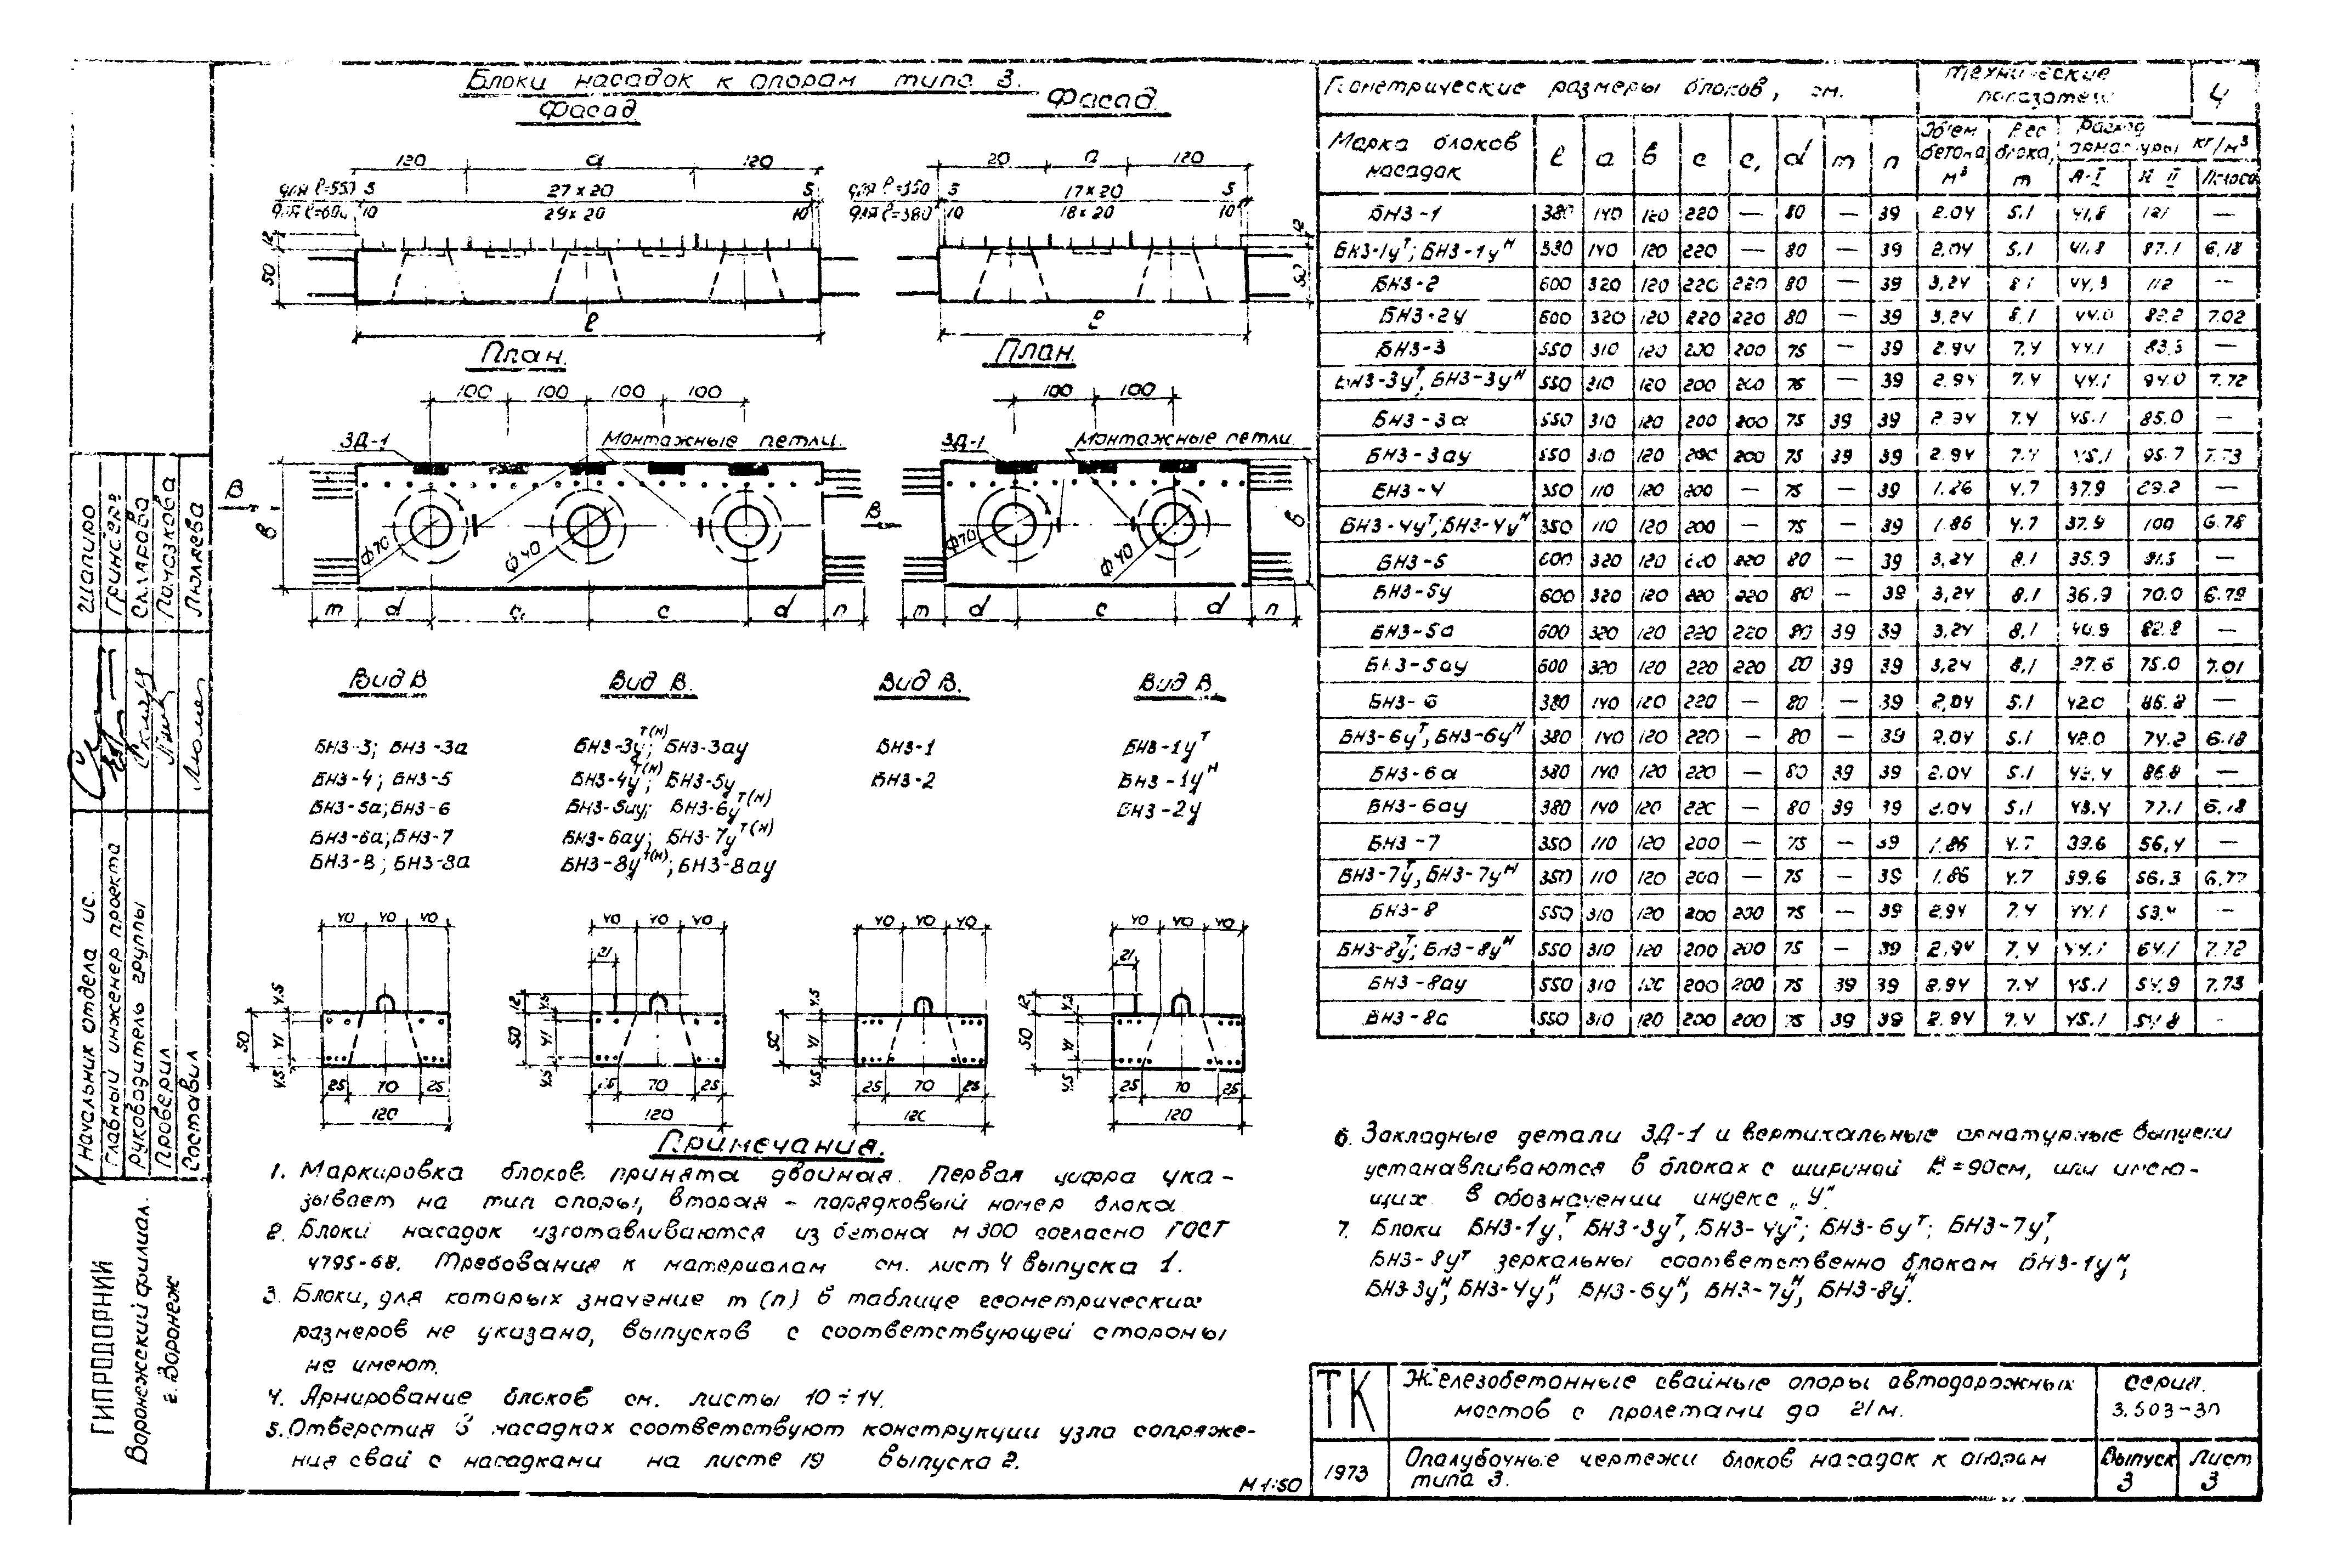 Блоки насадок к опорам типа 3.
Фасад
Фасад.
120 а 120
5 27 x 20 5
10 29 x 20 10
12
50
ℓ
20 а 120
для ℓ=350 5 17 x 20 5
для ℓ=380 10 18 x 20 10
12
План.
План.
100 100 100 100
100 100
ЗД-1
Монтажные петли.
ЗД-1
Монтажные петли.
В
В
в
в
Ф70
Ф40
Ф70
Ф40
m d c c d n
m d c d n
Вид В
Вид В.
Вид В.
Вид В.
БН3-3; БН3-3а
БН3-4; БН3-5
БН3-5а; БН3-6
БН3-6а; БН3-7
БН3-8; БН3-8а
БН3-3у т(н); БН3-3ау
БН3-4у т(н); БН3-5у
БН3-5ау; БН3-6у т(н)
БН3-6ау; БН3-7у т(н)
БН3-8у т(н); БН3-8ау
БН3-1
БН3-2
БН3-1у т
БН3-1у н
БН3-2у
40 40 40
50 4.5 41 4.5
25 70 25
120
40 40 40
21
12 50 4.5 41 4.5
70 25
120
40 40 40
4.5 41 4.5
25 70 25
40 40 40
21
12 50 41 4.5
25 70 25
120
Примечания.
1. Маркировка блоков принята двойная. Первая цифра ука-
зывает на тип опоры, вторая - порядковый номер блока
2. Блоки насадок изготавливаются из бетона М 300 согласно ГОСТ
4795-68. Требования к материалам см. лист 4 выпуска 1.
3. Блоки, для которых значение m (n) в таблице геометрических
размеров не указано, выпусков с соответствующей стороны
не имеют.
4. Армирование блоков см. листы 10÷14.
5. Отверстия в насадках соответствуют конструкции узла сопряже-
ния свай с насадками на листе 19 выпуска 2.
М 1:50
Геометрические размеры блоков, см.
Технические показатели
4
Марка блоков насадок ℓ а в с с, d m n Объем бетона м³ Вес блока, т Расход арматуры кг/м³ А-I А-II
БН3-1 380 140 120 220 — 80 — 39 2.04 5.1 41,8 121 —
БН3-1у т; БН3-1у н 380 140 120 220 — 80 — 39 2.04 5.1 41.8 87.1 6,18
БН3-2 600 320 120 220 220 80 — 39 3,24 8.1 44,3 112 —
БН3-2у 600 320 120 220 220 80 — 39 3,24 8,1 44.0 82.2 7.02
БН3-3 550 310 120 200 200 75 — 39 2.94 7.4 44.1 83,3 —
БН3-3у т, БН3-3у н 550 310 120 200 200 75 — 39 2.94 7.4 44.1 94.0 7.72
БН3-3а 550 310 120 200 200 75 39 39 2.94 7.4 45.1 85.0 —
БН3-3ау 550 310 120 200 200 75 39 39 2.94 7.4 45.1 95.7 7.73
БН3-4 350 110 120 200 — 75 — 39 1.86 4.7 37.9 —
БН3-4у т; БН3-4у н 350 110 120 200 — 75 — 39 1.86 4.7 37.9 100 6.78
БН3-5 600 320 120 220 220 80 — 39 3,24 8.1 35.9 —
БН3-5у 600 320 120 220 220 80 — 39 3,24 8.1 36.9 70.0 6.79
БН3-5а 600 320 120 220 220 80 39 39 3,24 8,1 40.9 82.8 —
БН3-5ау 600 320 120 220 220 80 39 39 3,24 8,1 37.6 75.0 7.01
БН3-6 380 140 120 220 — 80 — 39 2,04 5.1 42.0 86.8 —
БН3-6у т, БН3-6у н 380 140 120 220 — 80 — 39 2.04 5.1 42.0 74.2 6.18
БН3-6а 380 140 120 220 — 80 39 39 2.04 5.1 43.4 86.8 —
БН3-6ау 380 140 120 220 — 80 39 39 2.04 5.1 43.4 77.1 6.18
БН3-7 350 110 120 200 — 75 — 39 1.86 4.7 39.6 56,4 —
БН3-7у т, БН3-7у н 350 110 120 200 — 75 — 39 1.86 4.7 39.6 56.3 6.77
БН3-8 550 310 120 200 200 75 — 39 2.94 7.4 44.1 53.4 —
БН3-8у т; БН3-8у н 550 310 120 200 200 75 — 39 2.94 7.4 44.1 64.1 7.72
БН3-8ау 550 310 120 200 200 75 39 39 2.94 7.4 45.1 54.9 7.73
БН3-8а 550 310 120 200 200 75 39 39 2.94 7.4 45.1 54.8 -
6. Закладные детали ЗД-1 и вертикальные арматурные выпуски
устанавливаются в блоках с шириной В=90см, или имею-
щих в обозначении индекс „У".
7. Блоки БН3-1у т, БН3-3у т, БН3-4у т; БН3-6у т; БН3-7у т,
БН3-8у т зеркальны соответственно блокам БН3-1у н,
БН3-3у н, БН3-4у н, БН3-6у н, БН3-7у н, БН3-8у н.
ТК
Железобетонные свайные опоры автодорожных
мостов с пролетами до 21м.
серия.
3.503-30
1973
Опалубочные чертежи блоков насадок к опорам
типа 3.
Выпуск 3
Лист 3
ГИПРОДОРНИИ
Воронежский филиал.
г. Воронеж
Начальник отдела ис. Шапиро
Главный инженер проекта
Руководитель группы Склярова
Проверил
Составил Люляева